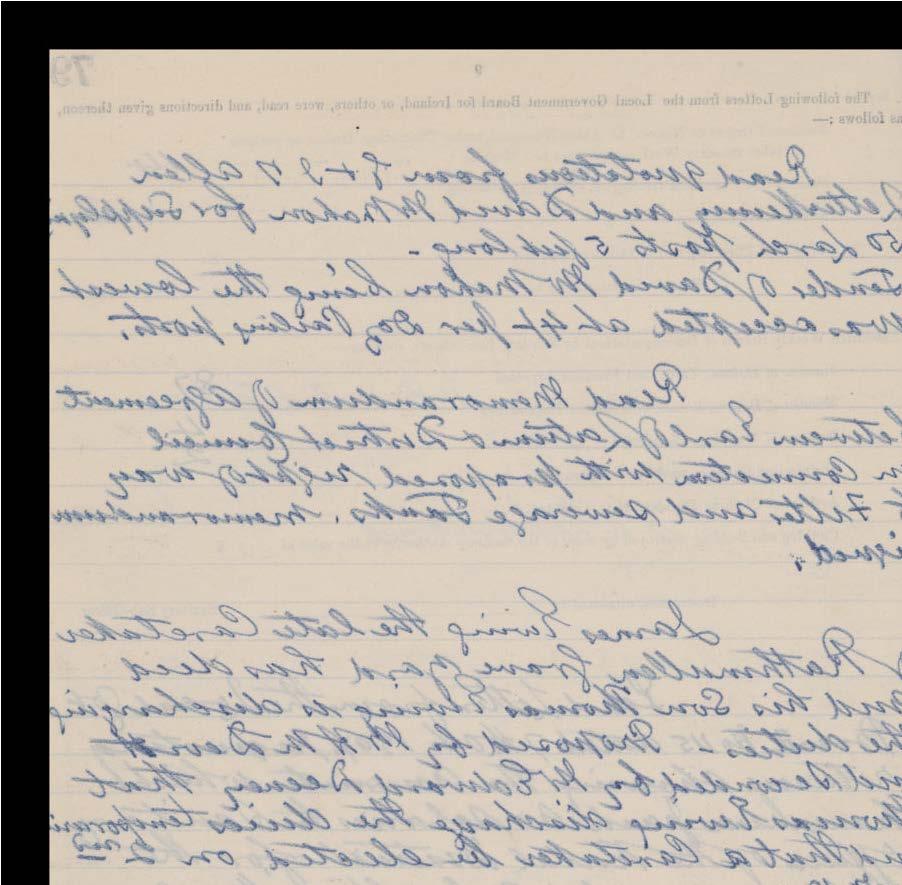 79
9
The following Letters from the Local Government Board for Ireland, or others, were read, and directions given thereon,
as follows ;—
Read quotations from
Letterkenny and David McMahon for supplying
50 Larch posts 5 feet long -
Tender of David McMahon being the lowest
was accepted at 4/- per Doz Paling posts.
Read Memorandum of Agreement
etween Earl of Leitrim & District Council
n connection with proposed right of way
Filter and Sewerage Tanks. Memorandum
igned.
James Ewing the late Caretaker
Rathmullen Grave yard has died
nd his Son Thomas Ewing is discharging
he duties - Proposed by Mr
nd Seconded by Mr Edward Deeney that
homas Ewing discharge the duties temporari
nd that a Caretaker be elected on 2nd